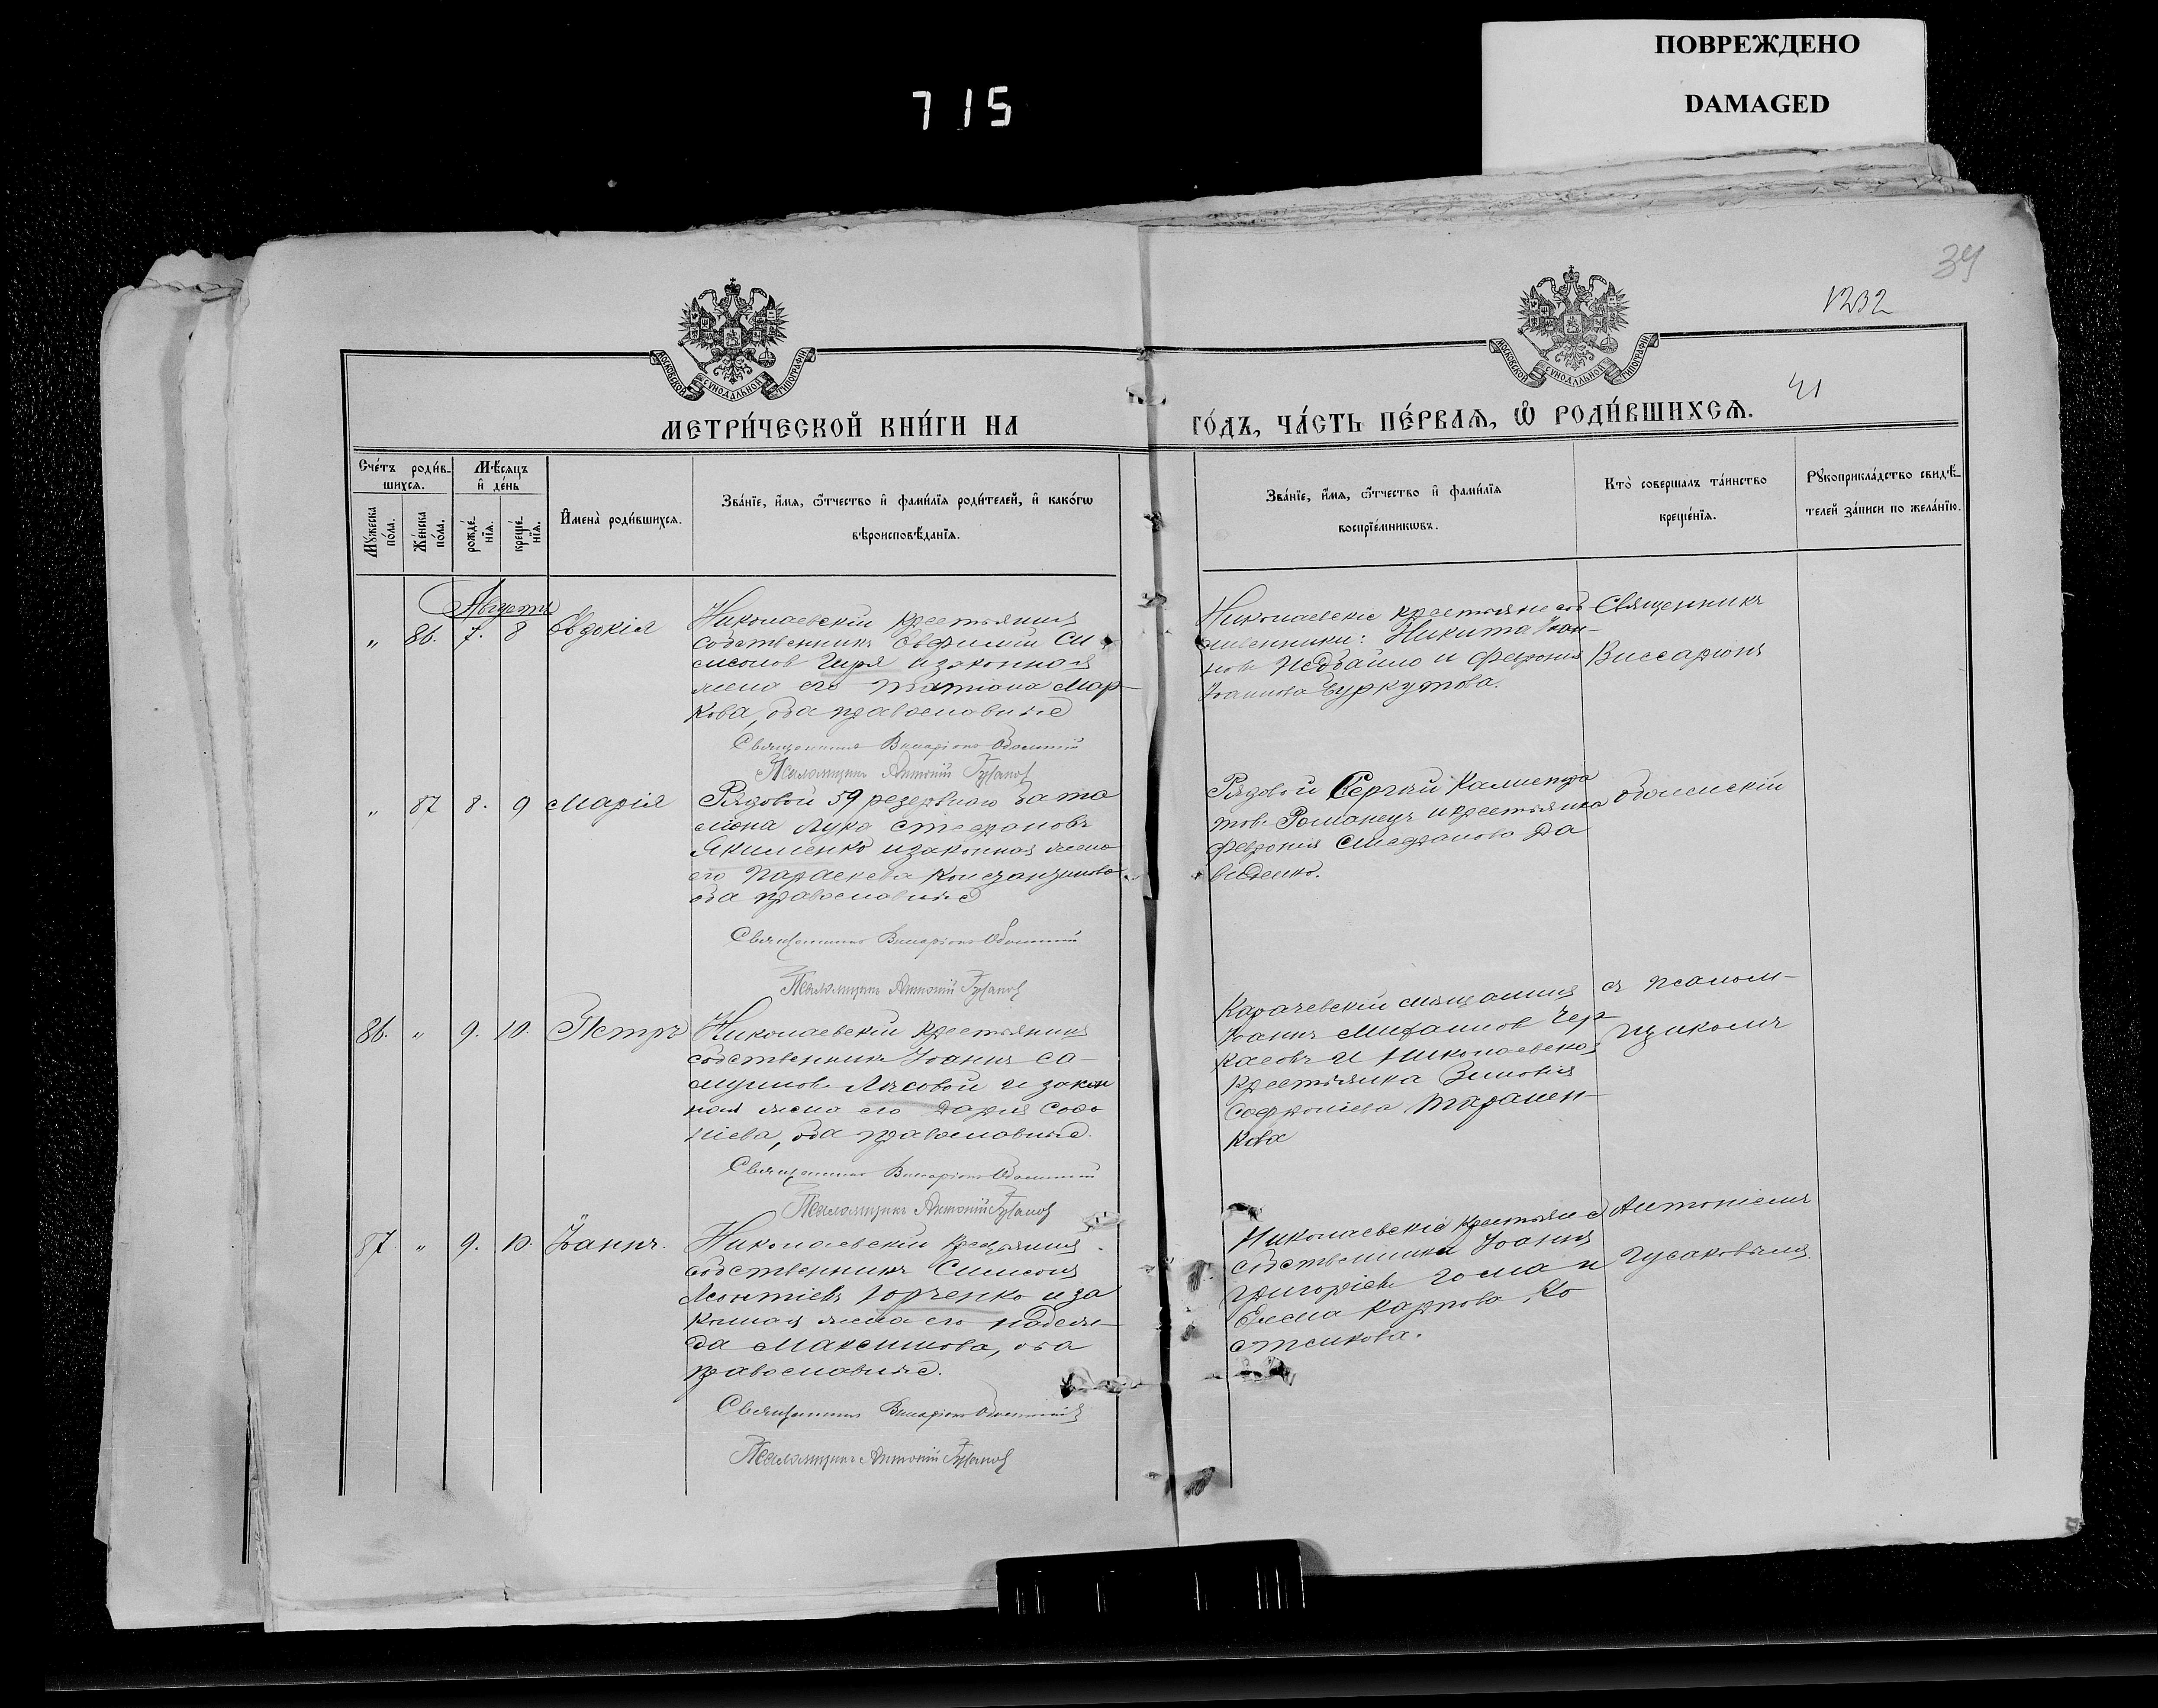 ПОВРЕЖДЕНО
DAMAGED
715
39
1232
41
МОСКОВСКОЙ СѴНОДАЛЬНОЙ ТИПОГРАФІИ
МОСКОВСКОЙ СѴНОДАЛЬНОЙ ТИПОГРАФІИ
МЕТРИ́ЧЕСКОЙ КНИ́ГИ НА
ГО́ДЪ, ЧА́СТЬ ПЕ́РВАѦ, Ѿ РОДИ́ВШИХСѦ.
Сче́тъ роди́в-
шихсѧ.
Мꙋ́жеска по́ла.
Же́нска по́ла.
Мѣ́сѧцъ
и҆ де́нь
рожде́-нїѧ.
креще́-нїѧ.
И҆мена̀ роди́вшихсѧ.
Зва́нїе, и҆́мѧ, ѻ҆́тчество и҆ фами́лїѧ роди́телей, и҆ како́гѡ
вѣроисповѣ́данїѧ.
Зва́нїе, и҆́мѧ, ѻ҆́тчество и҆ фами́лїѧ
воспрїе́мникѡвъ.
Кто̀ соверша́лъ та́инство
креще́нїѧ.
Рꙋкоприкла́дство свидѣ́-
телей за́писи по жела́нїю.
Августъ
" 86. 7. 8 Евдокія
Николаевскій крестьянинъ
собственникъ Евфимій Си
меонов Гиря и законная
жена его Татіана Мар-
кова, оба православные
Священникъ Виссаріонъ
Псаломщикъ Антоній Гусаковъ
Николаевскіе крестьяне соб
ственники: Никита Іоан-
новъ Недбайло и Феврония
Іоаннова Буркутова.
Священникъ
Виссаріонъ
" 87 8. 9 Марія
Рядовой 59 резервнаго бата
ліона Лука Стефановъ
Якименко и законная жена
его Параскева Констандинова
оба православные
Священникъ Виссаріонъ
Псаломщикъ Антоній Гусаковъ
Рядовой Сергѣй Калистра
товъ Романецъ и крестьянка
Феврония Стефанова Да
виденко.
86. " 9. 10. Петръ
Николаевскій крестьянинъ
собственникъ Іоаннъ Са-
муиловъ Лясовой и закон
ная жена его Дарія Созо
ніева, оба православные.
Священникъ Виссаріонъ
Псаломщикъ Антоній Гусаковъ
Карачевскій мѣщанинъ
Іоаннъ Михаиловъ Чер
касовъ и Николаевская
крестьянка Зиновія
Софроніева Таранен-
кова
съ псалом-
щикомъ
87. " 9. 10. Іоаннъ.
Николаевскій крестьянинъ
собственникъ Симеонъ
Леонтіевъ Юрченко и за
конная жена его Надеж-
да Максимова, оба
православные.
Священникъ Виссаріонъ
Псаломщикъ Антоній Гусаковъ
Николаевскіе крестьяне
собственники Іоаннъ
Григоріевъ Гома и
Елена Карпова Ко
стикова.
Антоніемъ
Гусаковымъ.